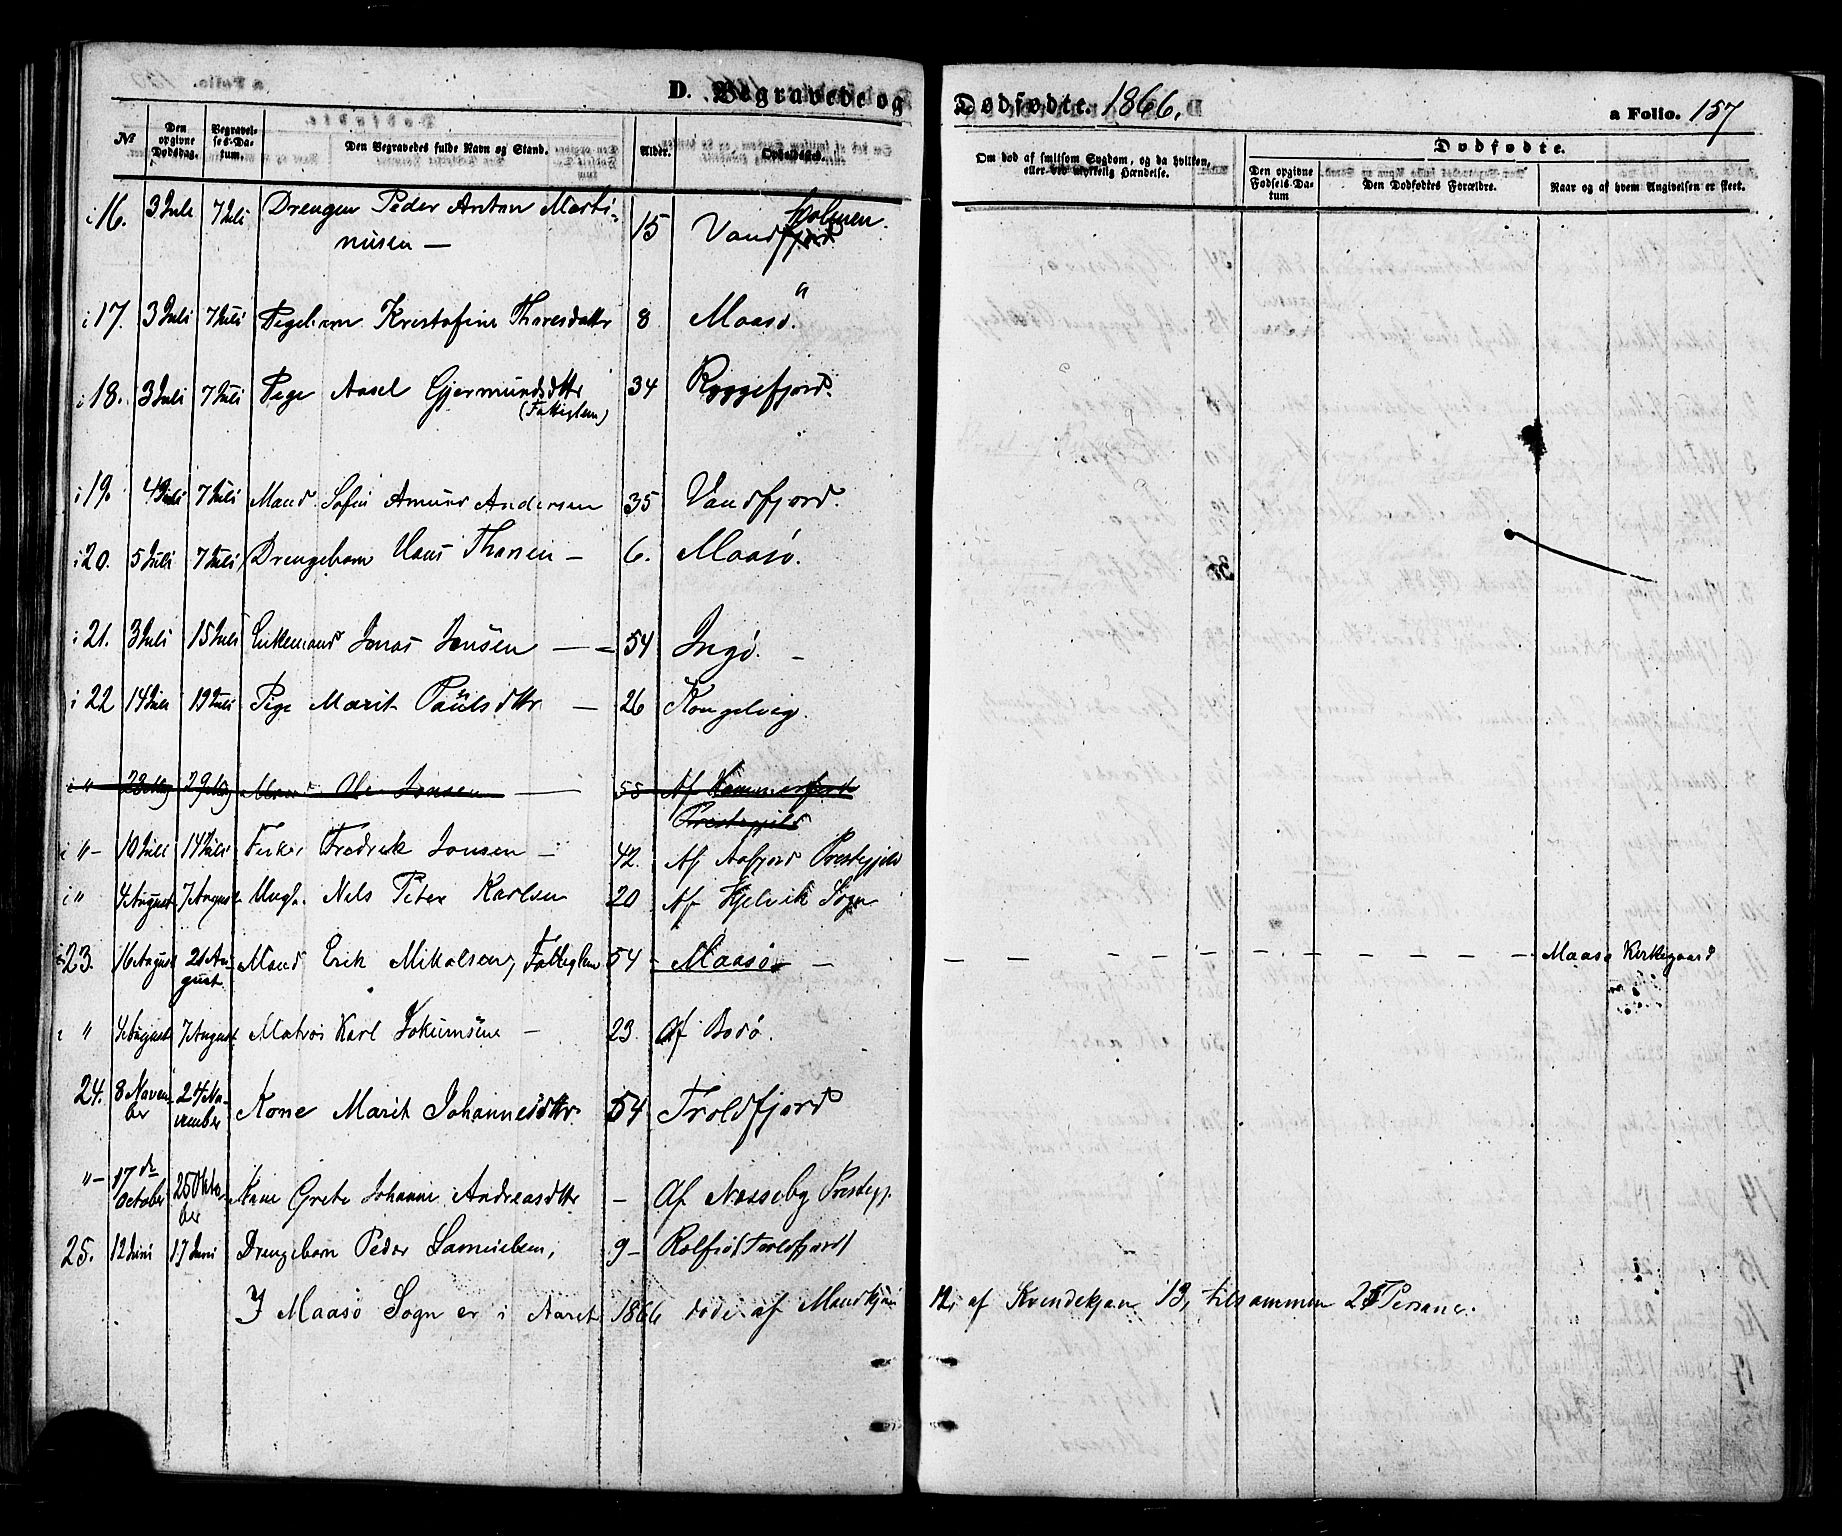 D. Begravede og Dødfødte. 1866. a Folio. 157
№ Den opgivne Dødsdag. Begravelses-Datum. Den Begravedes fulde Navn og Stand. Alder. Opholdssted. Om død af smitsom Sygdom, og da hvilken, eller ved ulykkelig Hændelse. Dødfødte. Den opgivne Fødsels-Datum Den Dødfødtes Forældre. Naar og af hvem Angivelsen er skeet.
i 16. 3 Juli 7 Juli Drengen Peder Anton Marti- 15 Vandfjord Holmen.
nusen —
i 17. 3 Juli 7 Juli Pigebarn Kristofine Thoresdattr 8 Maasø. "
i 18. 3 Juli 7 Juli Pige Aasel Gjermundsdttr 34 Ryggefjord.
(Fattiglem)
i 19. 4 Juli 7 Juli Mand Sofus Amund Andersen 35 Vandfjord.
i 20. 5 Juli 7 Juli Drengebarn Hans Thoresen — 6. Maasø.
i 21. 3 Juli 15 Juli Enkemand Jonas Jensen — — 54 Ingø. —
i 22 14 Juli 19 Juli Pige Marit Paulsdttr. — 26 Kongelvig.
i " 23 Maj 29 Maj Mand Ole Jonsen — 55 Af Hammerfest
Prestegjeld
i "— 10 Juli 14 Juli Fisker Fredrik Jonsen — 42. Af Aafjord Prestegjeld
i " 4 August 7 August Ungk. Nels Peter Karlsen 20 Af Hjelvik Sogn
i 23. 16 August 21 August Mand Erik Mikalsen, Fattiglem 54 — Maasø — Maasø Kirkegaard
i " 4 August 7 August Matros Karl Jokumsene — 23. Af Bodø.
24. 8 November 24 November Kone Marit Johannesdttr. 54 Troldfjord
"— 17 de October 25 Oktober Kone Grete Johanne Andreasdttr — Af Nesseby Prestegj.
25. 12 Juni 17 Juni Drengebarn Peder Samuelsen, 9— Rolfsø (Troldfjord)
I Maasø Sogn er i Aaret 1866 døde af Mandkjøn 12, af Kvindekjøn 13, tilsammen 25 Personer.